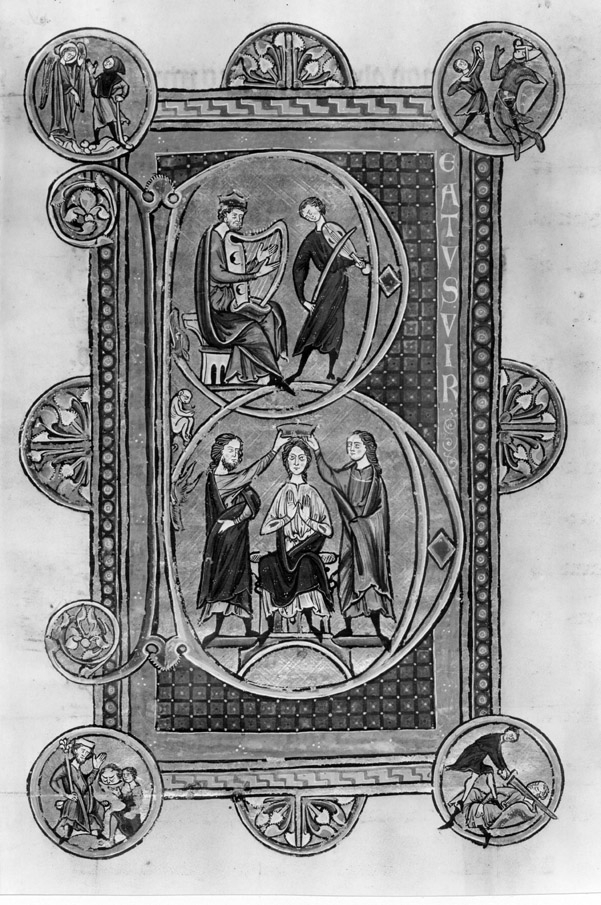 BEATVS VIR